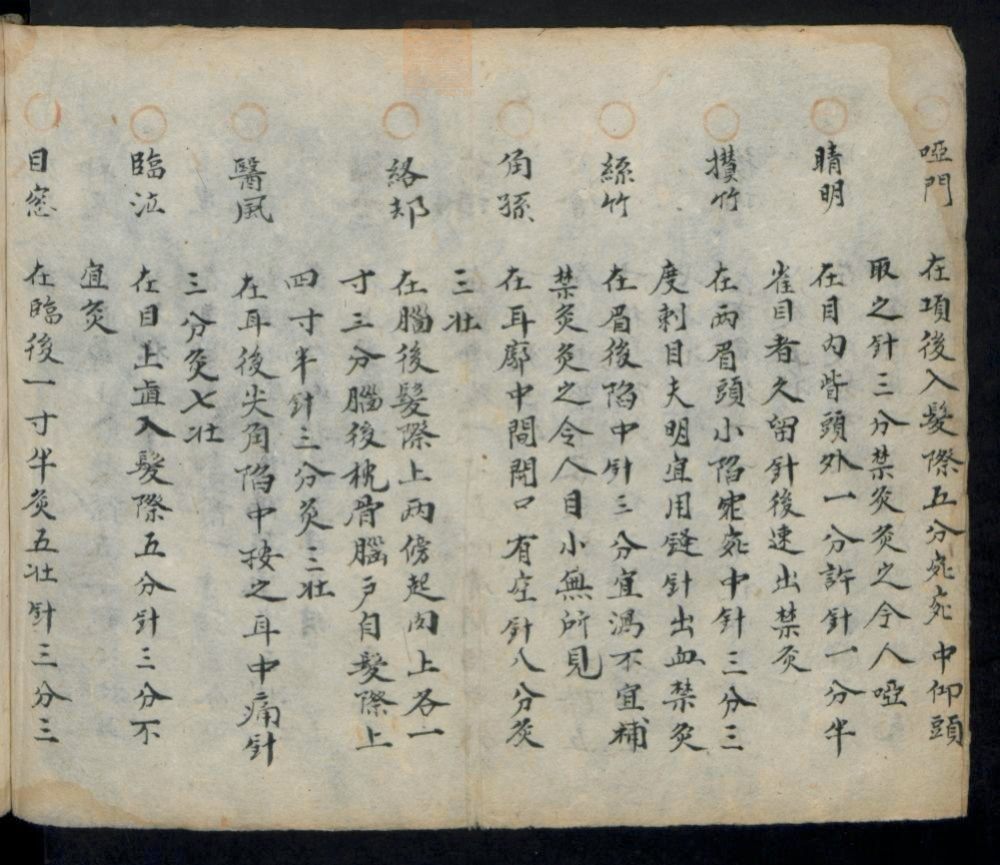 啞門 在項後入髮際五分宛宛中仰頭
取之针三分禁灸灸之令人啞
睛明 在目内眥頭外一分許针一分半
雀目者久留针後速出禁灸
攢竹 在兩眉頭小陷宛宛中针三分三
度刺目大明宜用鋒针出血禁灸
絲竹 在眉後陷中针三分宜瀉不宜補
禁灸灸之令人目小無所見
角孫 在耳廓中間開口有空针八分灸
三壯
絡却 在腦後髮際上兩傍起肉上各一
寸三分腦後枕骨腦户自髮際上
四寸半针三分灸三壯
醫風 在耳後尖角陷中按之耳中痛针
三分灸七壯
臨泣 在目上直入髮際五分针三分不
宜灸
目窓 在臨後一寸半灸五壯针三分三